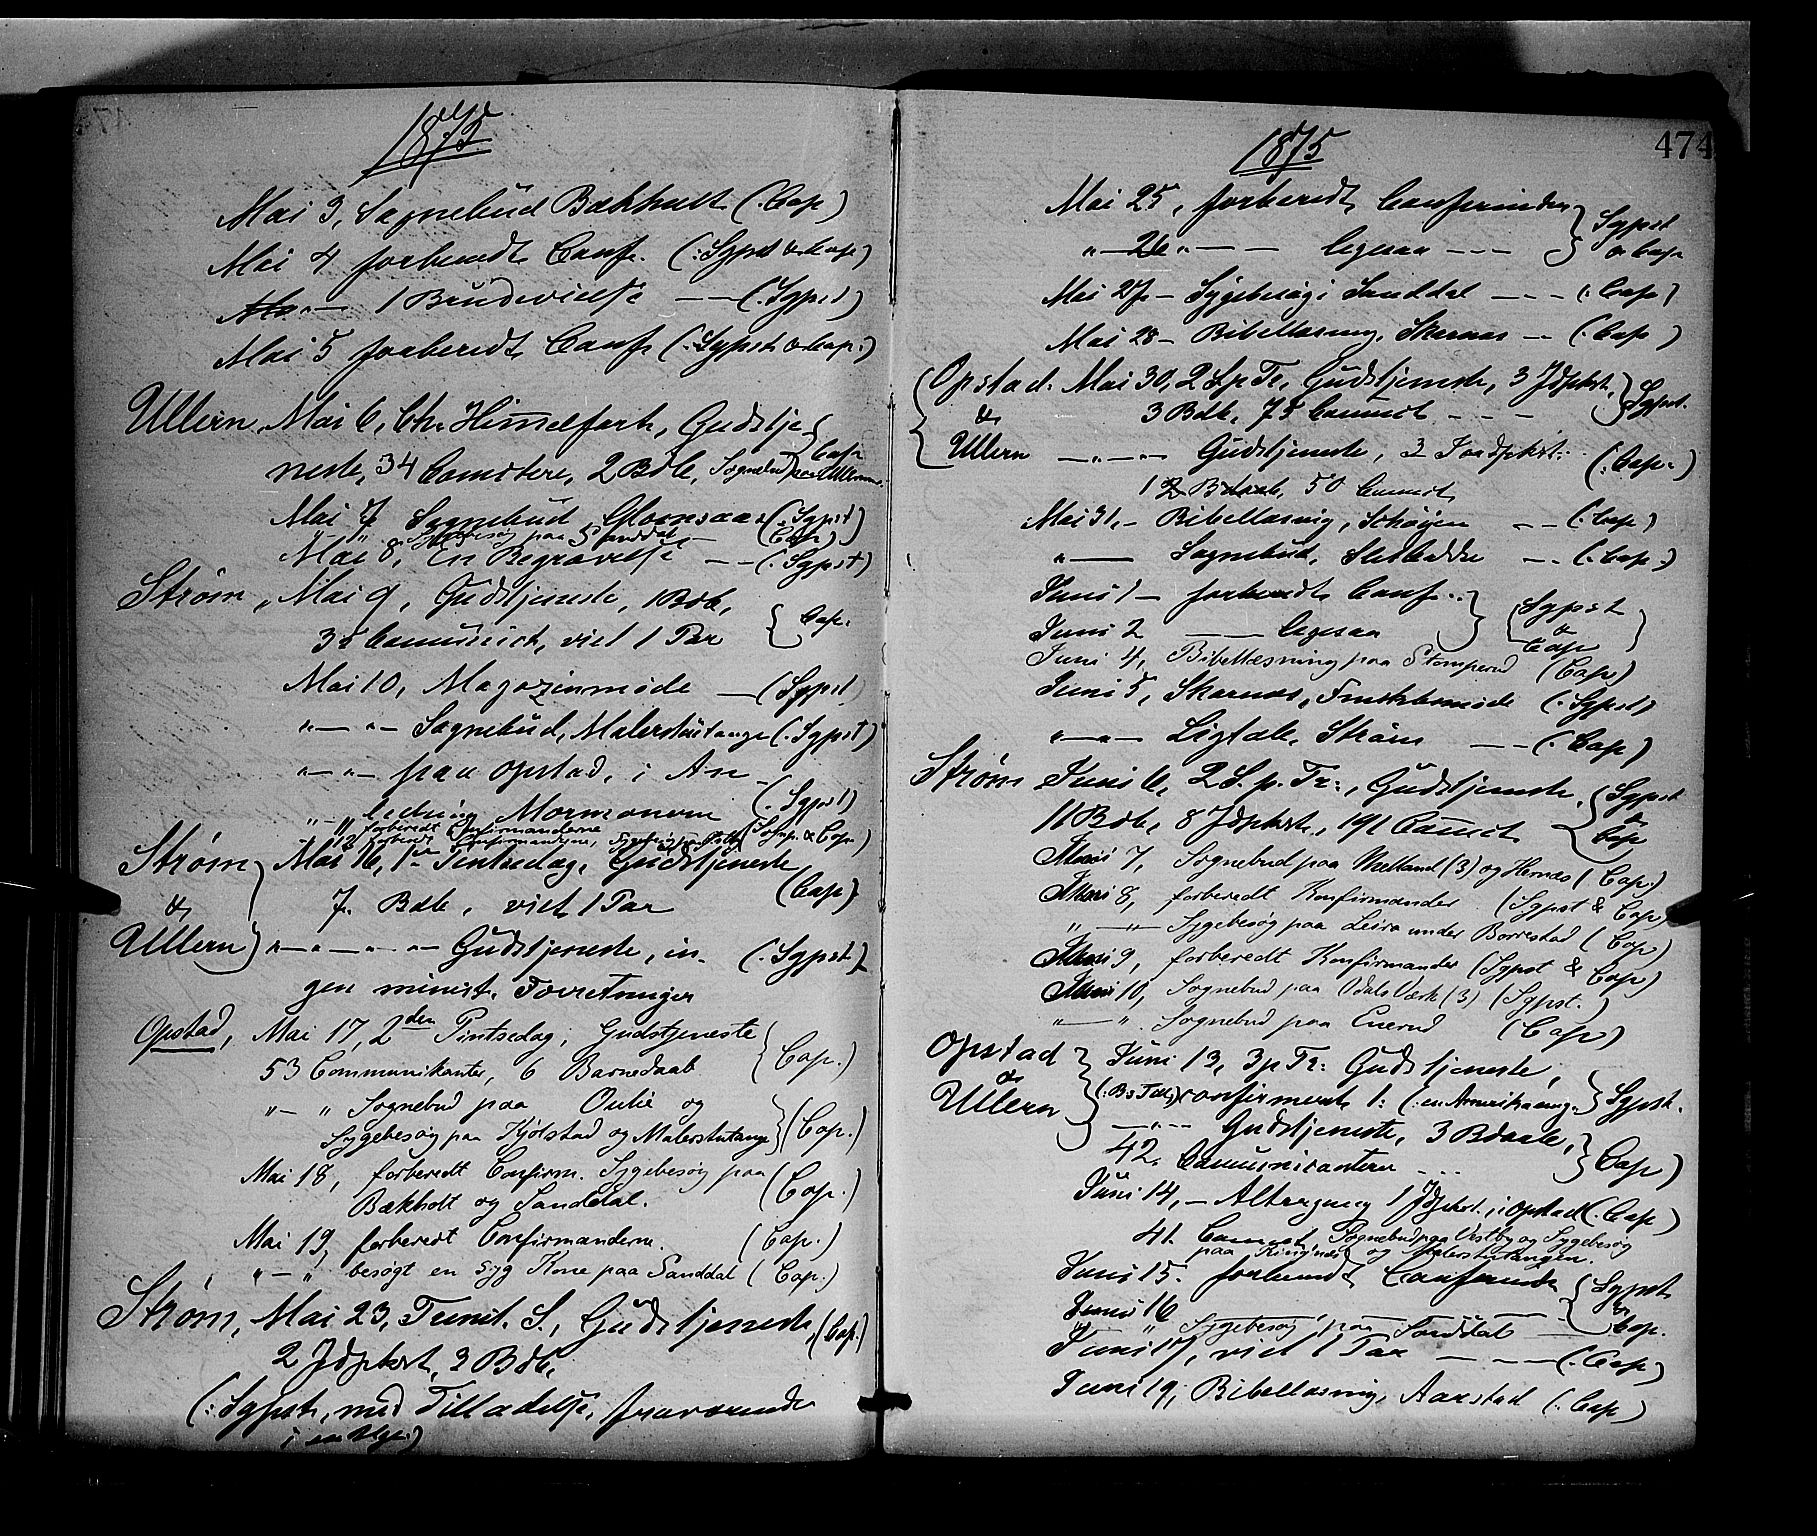 1875
Mai 3, Sognebud Bækholt (: Cap)
Mai 4 forberedt Conf. (: Sgpst & Cap)
— 1 Brudevielse — (: Sgpst)
Mai 5 forberedt Conf (: Sgpst & Cap:)
Ullern, Mai 6, Chr. Himmelfart, Gudstje-
neste, 34 Comtere, 2 Bdb, Sognebud paa Ullern (Cap
Mai 7 Sognebud Glomsaas (: Sgpst)
" Sygebesøg paa Sanddal — (Cap)
Mai 8, En Begravelse — (: Sgpst)
Strøm, Mai 9, Gudstjeneste, 1 Bdb,
35 Communict, viet 1 Par } Cap:
Mai 10, Magazinmøde — (: Sgpst)
" — " — Sognebud, Malerstutange (: Sgpst)
" — " — paa Opstad, i An-
ledning Mormonerne (: Sgpst)
" 12 forberedt Confirmanderne (Sgpst & Cap)
Strøm Mai 16, 1ste Pintsedag, Gudstjeneste
& 7 Bdb, viet 1 Par (Cap)
Ullern " — " — " — Gudstjeneste, in- (: Sgpst)
gen minist. Forretninger
Opstad, Mai 17, 2den Pintsedag, Gudstjeneste
53 Communikanter, 6 Barnedaab } Cap.)
" — " Sognebud paa Oulie og
Sygebesøg paa Kjølstad og Malerstutange } (Cap.)
Mai 18, forberedt Confirm. Sygebesøg paa
Bækholt og Sanddal. (Cap.)
Mai 19, forberedt Confirmanderne. (Cap.)
" — " besøgt en syg Kone paa Sanddal (Cap.)
Strøm, Mai 23, Trinit. S., Gudstjeneste, (Cap.)
2 Jdpkst, 3 Bdb,
(: Sgpst, med Tilladelse, fraværende
i en Uge)
1875
474
Mai 25, forberedt Confirmander } Sgpst
" — 26 " — — ligesaa — — — } & Cap
Mai 27 — Sygebesøg i Sanddal — — — (: Cap)
Mai 28 — Bibellæsning, Skarnæs — — (: Cap)
Opstad Mai 30, 2 S p Tr, Gudstjeneste, 3 Jdpkst, } Sgpst.
& 3 Bdb, 75 Commct — — —
Ullern — " — Gudstjeneste, 3 Jordpkst: (: Cap:)
1 Bdaab, 50 Commct
Mai 31, — Bibellæsning, Schøyen — — (: Cap)
" — Sognebud, Sletbakke — — (: Cap:)
Juni 1 — forberedt Conf.. } (Sgpst
Juni 2 — ligesaa } & Cap
Juni 4, Bibellæsning paa Stomperud (Cap)
Juni 5, Skarnæs, Fruktbmøde (: Sgpst)
" — " — Ligtale, Strøm — — (: Cap)
Strøm Juni 6, 2 S. p. Tr:, Gudstjeneste, } Sgpst
11 Bdb, 8 Jdpkst, 191 Commct } & Cap
Juni 7, Sognebud paa Melland (3) og Hernæs (Cap.)
Juni 8, forberedt Konfirmander (Sgpst & Cap)
" — " — Sygebesøg paa Leira under Borrestad (Cap)
Juni 9, forberedt Konfirmander (Sgpst & Cap)
Juni 10, Sognebud paa Odals Værk (3) (Sgpst.)
" — " Sognebud paa Enerud (Cap)
Opstad Juni 13, 3 p Tr: Gudstjeneste,
& confirmeret 1: (: en Amerikaeng. } Sgpst.
Ullern — " — — Gudstjeneste, 3 Bdaab,
42. Communicantere — — — } Cap)
Juni 14, — Altergang 1 Jdpkst. i Opstad (: Cap)
41. Commct Sognebud paa Vestby og Sygebesøg
paa Ringnes og Malerstutangen.
Juni 15. forberedt Confirmande } Sgpst
Juni 16 — — } & Cap.
" — " Sygebesøg paa Sanddal —
Juni 17, viet 1 Par — — — (: Cap)
Juni 19, Bibellæsning, Aarstad (: Cap)